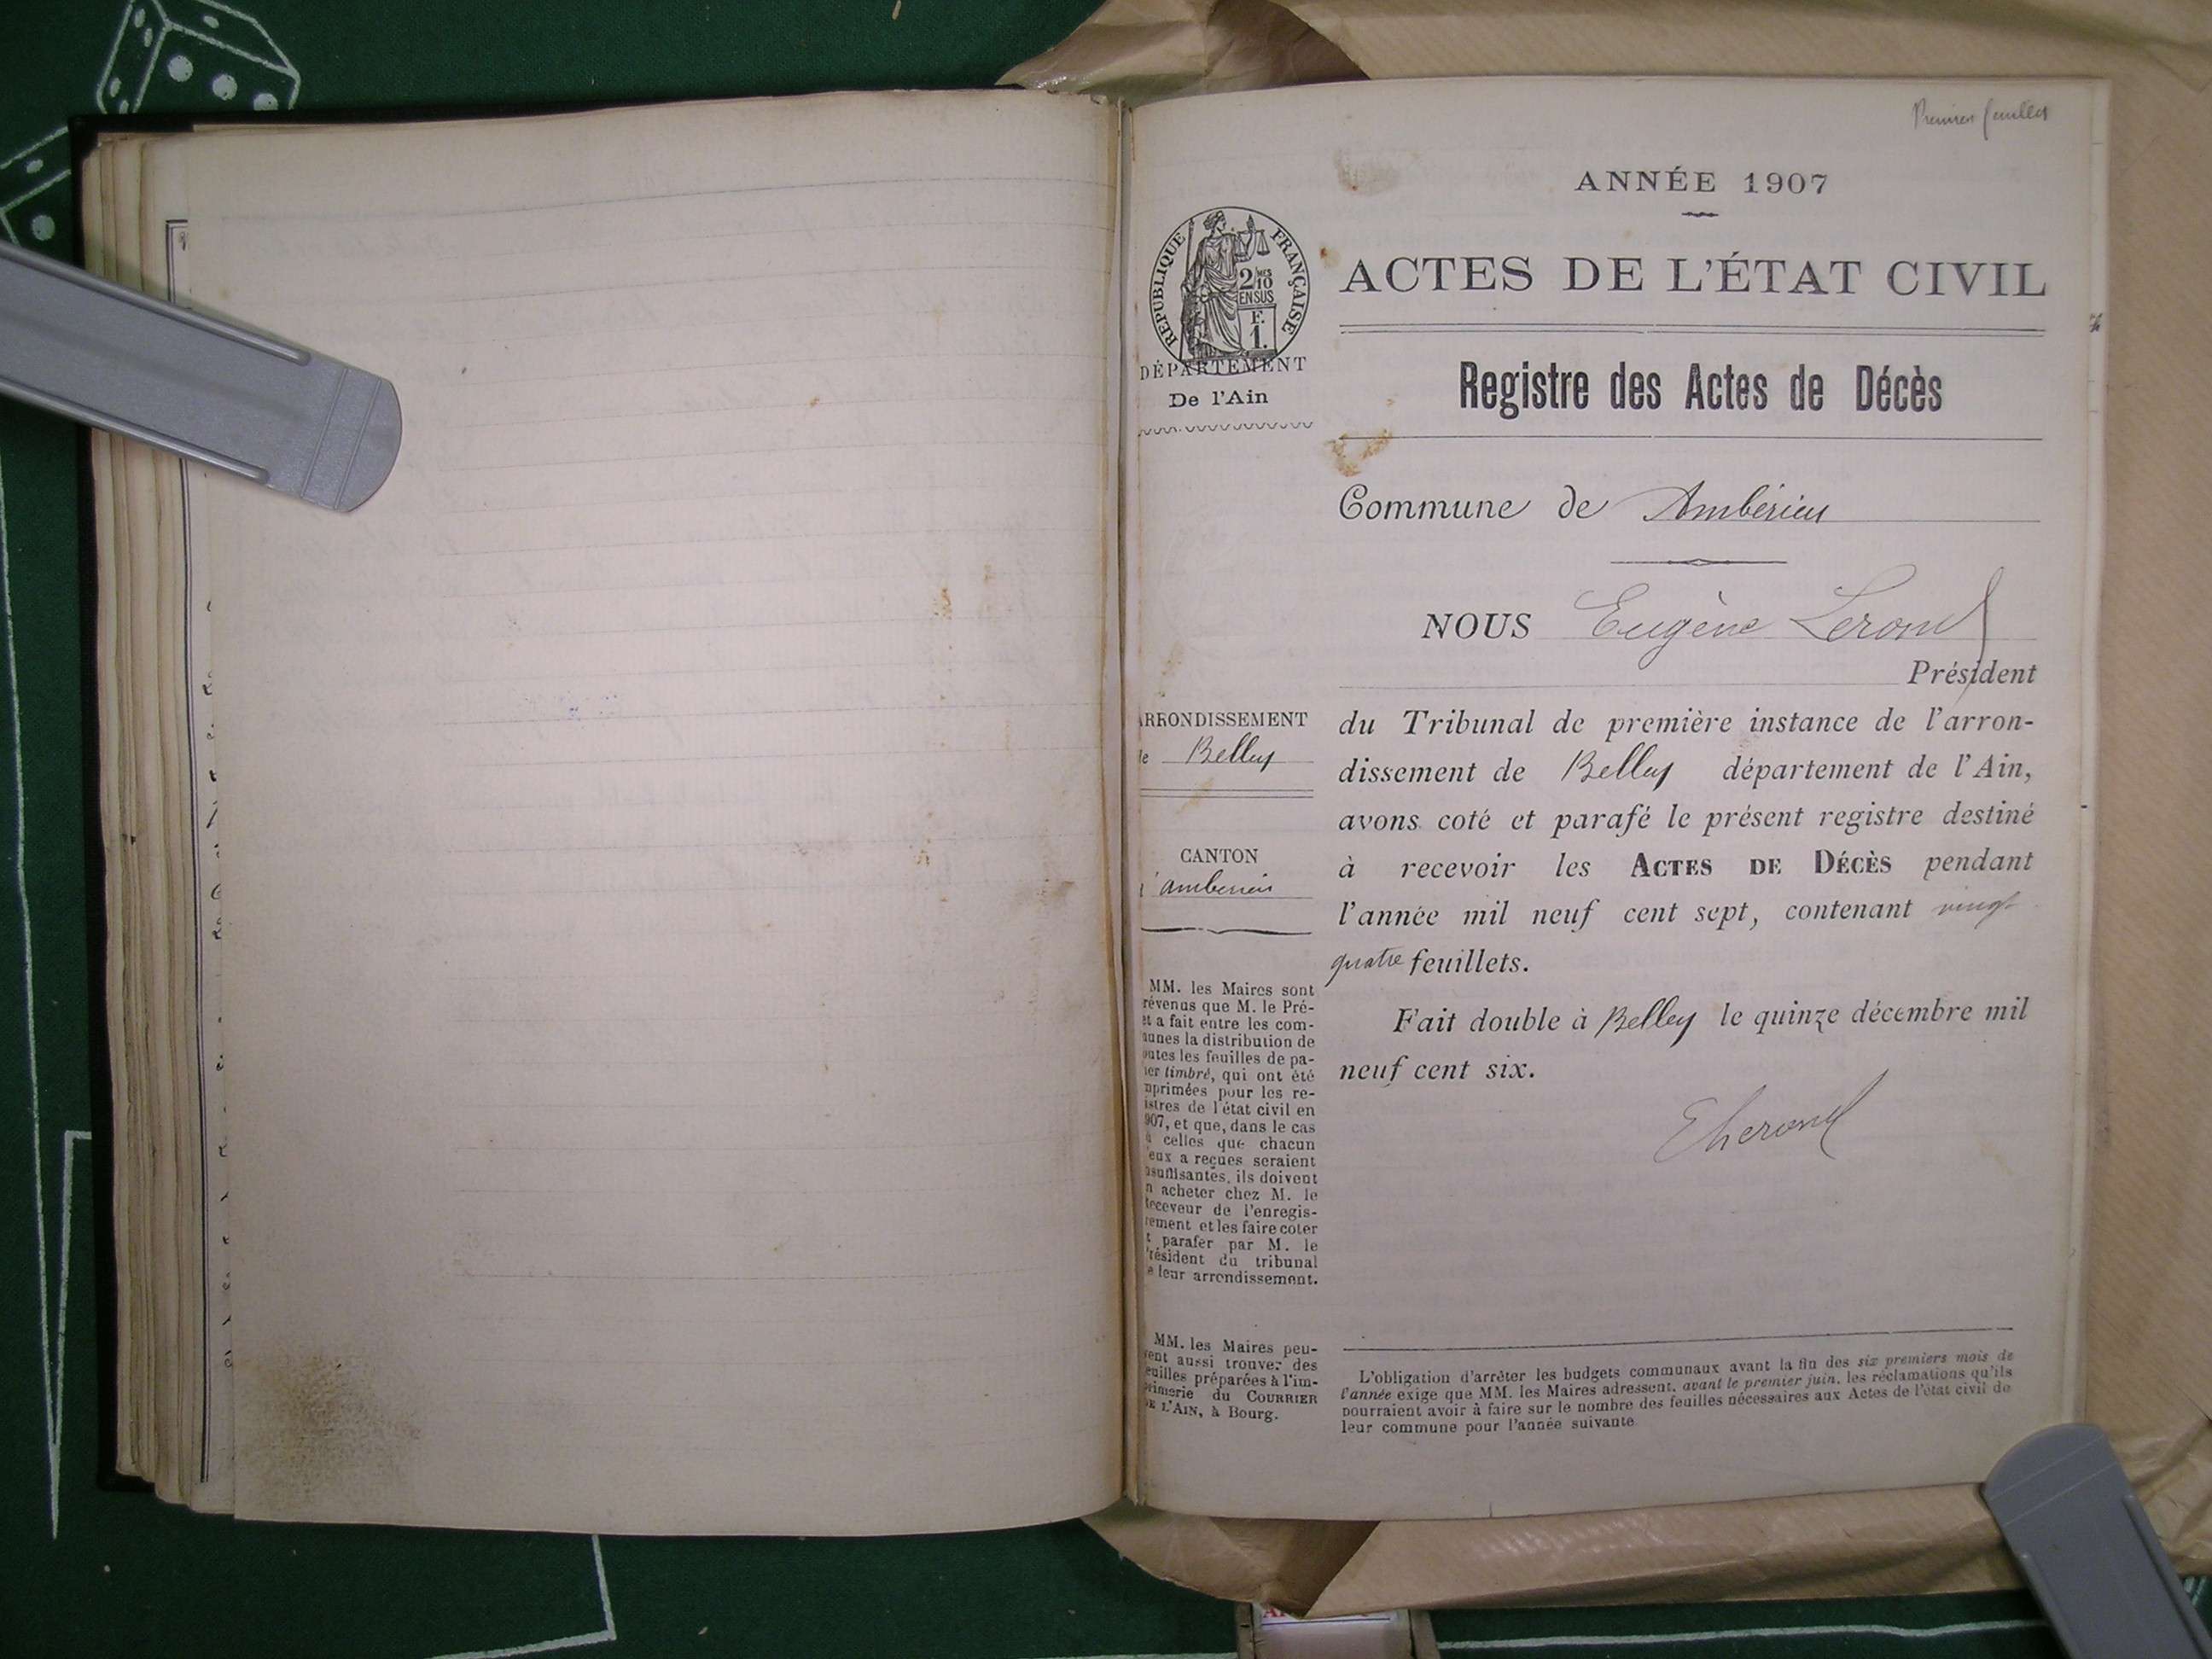 Premier feuillet
ANNÉE 1907
RÉPUBLIQUE FRANÇAISE
2 MES
10
EN SUS
F.
1.
DÉPARTEMENT
De l'Ain
ACTES DE L'ÉTAT CIVIL
Registre des Actes de Décès
Commune de Ambérieu
NOUS Eugène
Président
ARRONDISSEMENT
de Belley
du Tribunal de première instance de l'arron-
dissement de Belley département de l'Ain,
avons coté et parafé le présent registre destiné
à recevoir les ACTES DE DÉCÈS pendant
l'année mil neuf cent sept, contenant vingt
quatre feuillets.
Fait double à Belley le quinze décembre mil
neuf cent six.
CANTON
d'ambérieu
MM. les Maires sont
révenus que M. le Pré-
et a fait entre les com-
munes la distribution de
outes les feuilles de pa-
ier timbré, qui ont été
mprimées pour les re-
istres de l'état civil en
907, et que, dans le cas
ù celles que chacun
'eux a reçues seraient
nsuffisantes, ils doivent
n acheter chez M. le
eceveur de l'enregis-
rement et les faire coter
t parafer par M. le
résident du tribunal
e leur arrondissement.
MM. les Maires peu-
vent aussi trouver des
euilles préparées à l'im-
rimerie du COURRIER
DE L'AIN, à Bourg.
L'obligation d'arrêter les budgets communaux avant la fin des six premiers mois de
l'année exige que MM. les Maires adressent, avant le premier juin, les réclamations qu'ils
pourraient avoir à faire sur le nombre des feuilles nécessaires aux Actes de l'état civil de
leur commune pour l'année suivante